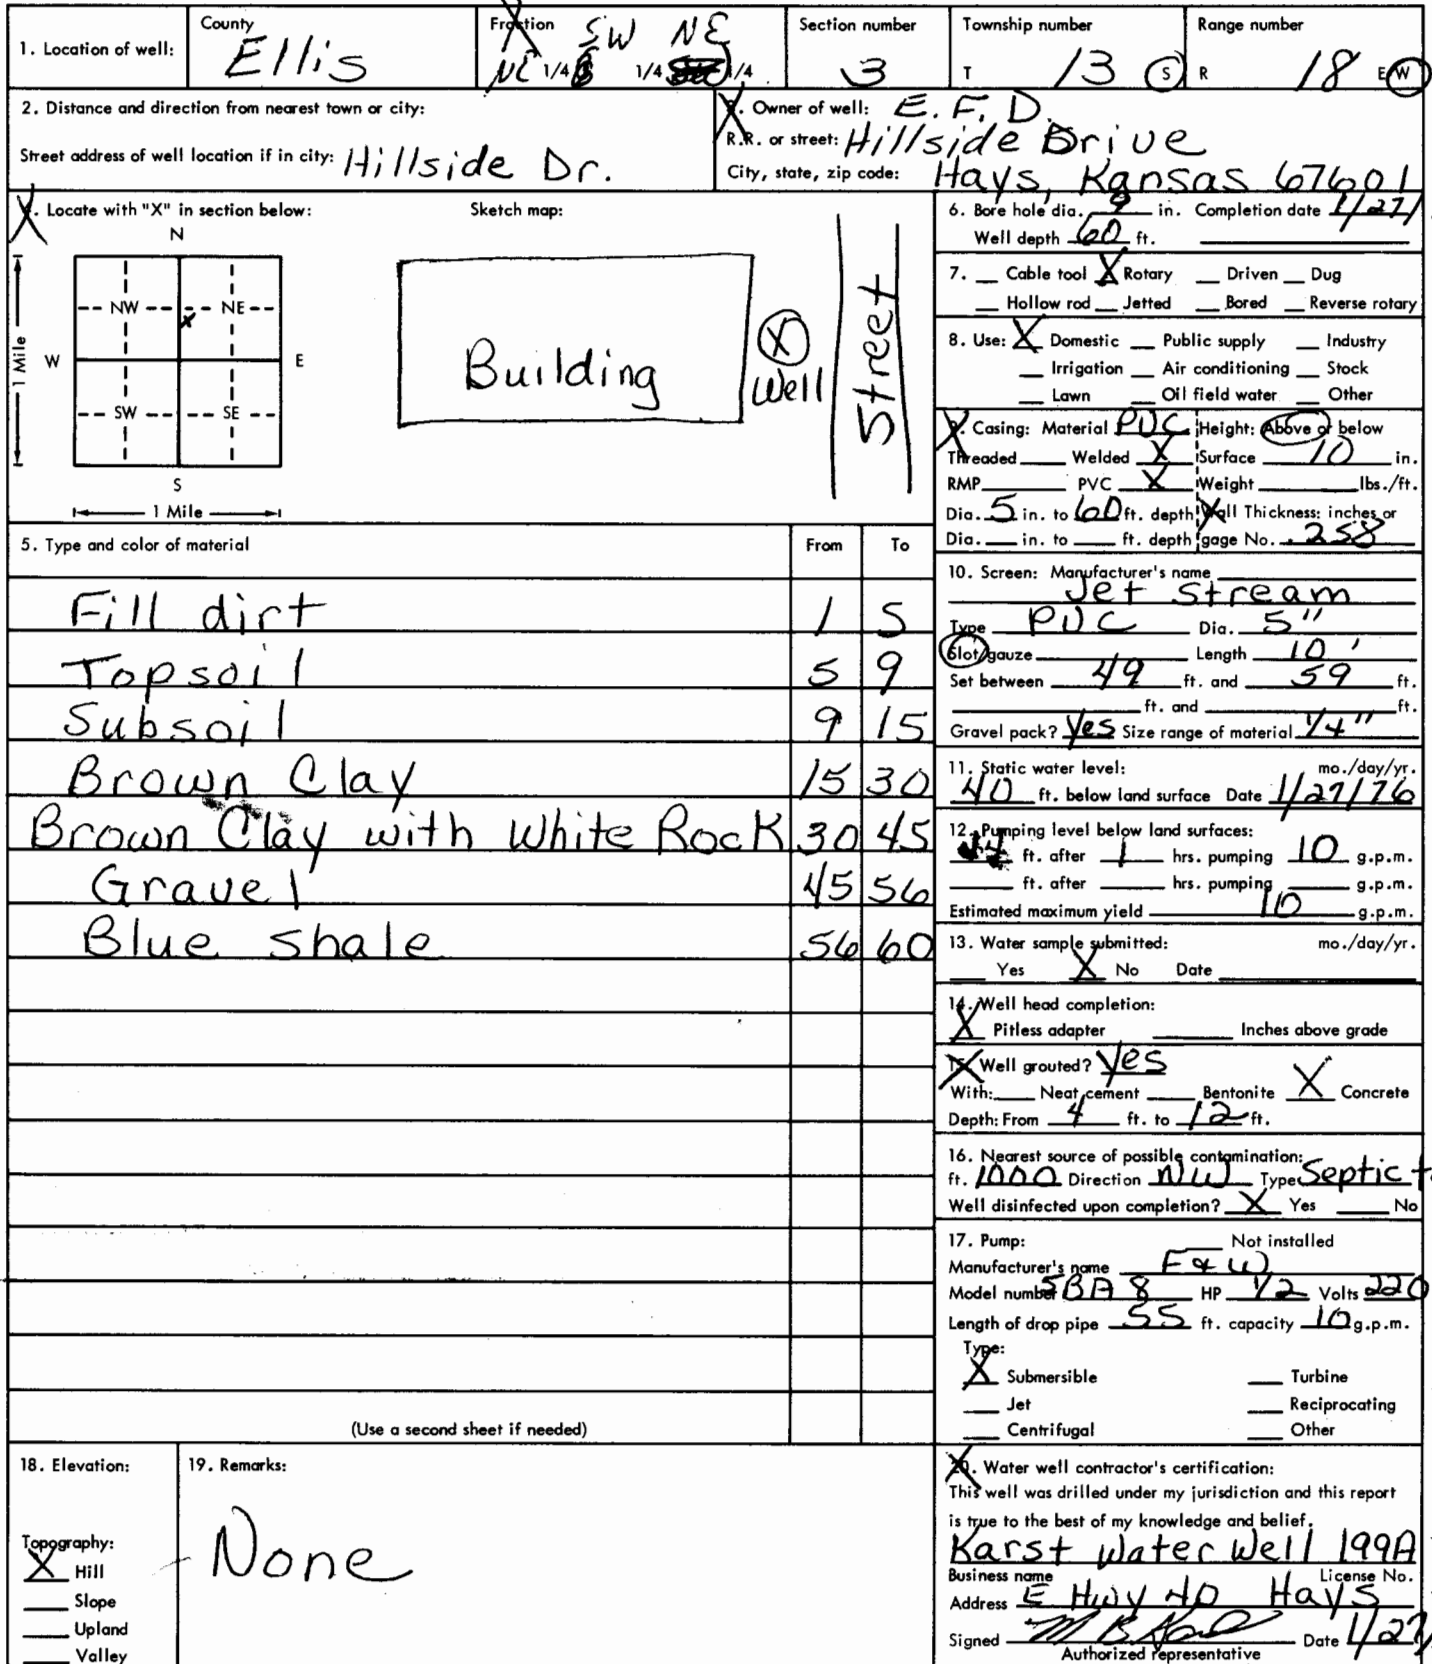 1. Location of well: County Ellis Fraction NE 1/4 SW 1/4 NE 1/4 Section number 3 Township number T 13 S Range number R 18 E W
2. Distance and direction from nearest town or city:
Street address of well location if in city: Hillside Dr.
3. Owner of well: E. F. D.
R.R. or street: Hillside Drive
City, state, zip code: Hays, Kansas 67601
4. Locate with "X" in section below: Sketch map:
N
NW NE
X
W E
SW SE
S
1 Mile
1 Mile
Building
X
Well
Street
5. Type and color of material From To
Fill dirt 1 5
Topsoil 5 9
Subsoil 9 15
Brown Clay 15 30
Brown Clay with White Rock 30 45
Gravel 45 56
Blue shale 56 60
(Use a second sheet if needed)
6. Bore hole dia. 9 in. Completion date 1/27/
Well depth 60 ft.
7. Cable tool X Rotary Driven Dug
Hollow rod Jetted Bored Reverse rotary
8. Use: X Domestic Public supply Industry
Irrigation Air conditioning Stock
Lawn Oil field water Other
9. Casing: Material PVC Height: Above or below
Threaded Welded X Surface 10 in.
RMP PVC X Weight lbs./ft.
Dia. 5 in. to 60 ft. depth Wall Thickness: inches or
Dia. in. to ft. depth gage No. .258
10. Screen: Manufacturer's name
Jet Stream
Type PVC Dia. 5"
Slot/gauze Length 10'
Set between 49 ft. and 59 ft.
ft. and ft.
Gravel pack? Yes Size range of material 1/4"
11. Static water level: mo./day/yr.
40 ft. below land surface Date 1/27/76
12. Pumping level below land surfaces:
ft. after 1 hrs. pumping 10 g.p.m.
ft. after hrs. pumping g.p.m.
Estimated maximum yield 10 g.p.m.
13. Water sample submitted: mo./day/yr.
Yes X No Date
14. Well head completion:
X Pitless adapter Inches above grade
15. Well grouted? Yes
With: Neat cement Bentonite X Concrete
Depth: From 4 ft. to 12 ft.
16. Nearest source of possible contamination:
ft. 1000 Direction NW Type Septic
Well disinfected upon completion? X Yes No
17. Pump: Not installed
Manufacturer's name F & W
Model number 5BA 8 HP 1/2 Volts 220
Length of drop pipe 55 ft. capacity 10 g.p.m.
Type:
X Submersible Turbine
Jet Reciprocating
Centrifugal Other
18. Elevation:
Topography:
X Hill
Slope
Upland
Valley
19. Remarks:
None
20. Water well contractor's certification:
This well was drilled under my jurisdiction and this report
is true to the best of my knowledge and belief.
Karst Water Well 199A
Business name License No.
Address E Hwy 40 Hays
Signed Date 1/27/
Authorized representative